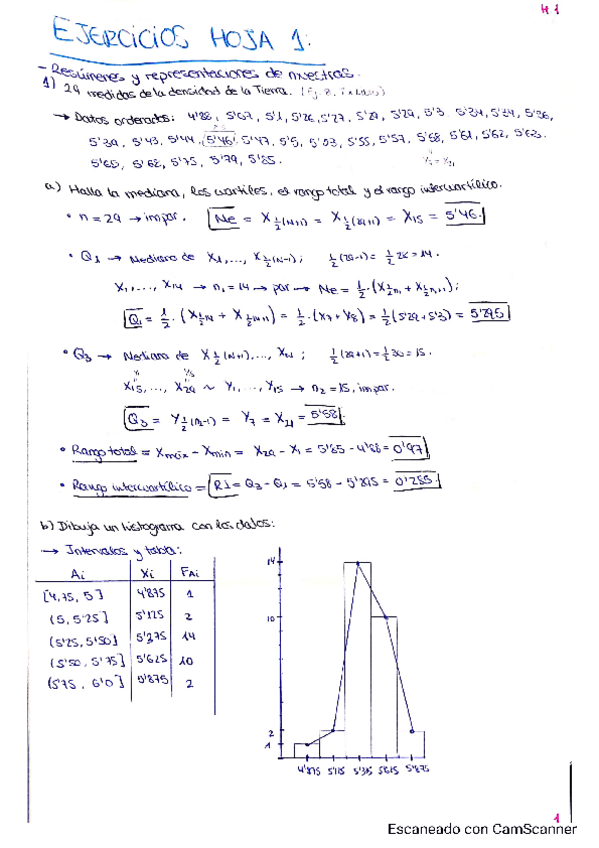 H 1
EJERCICIOS HOJA 1:
- Resúmenes y representaciones de muestras.
1) 29 medidas de la densidad de la Tierra.
→ Datos ordenados: 4'88, 5'07, 5'1, 5'26, 5'27, 5'29, 5'29, 5'3, 5'34, 5'34, 5'36,
5'39, 5'43, 5'44, 5'46, 5'47, 5'5, 5'53, 5'55, 5'57, 5'58, 5'61, 5'62, 5'63,
5'65, 5'68, 5'75, 5'79, 5'85.
a) Halla la mediana, los cuartiles, el rango total y el rango intercuartílico.
• n = 29 → impar. Me = X½(N+1) = X½(29+1) = X15 = 5'46.
• Q1 → Mediana de X1, ..., X½(N-1); ½(29-1) = ½ 28 = 14.
X1, ..., X14 → n1 = 14 → par → Me = ½·(X½n1 + X½n1+1);
Q1 = ½·(X½14 + X½14+1) = ½·(X7 + X8) = ½(5'29 + 5'3) = 5'295
• Q3 → Mediana de X½(N+1), ..., XN; ½(29+1) = ½ 30 = 15.
X15, ..., X29 ~ Y1, ..., Y15 → n2 = 15, impar.
= Y7 = X21 = 5'58.
• Rango total = Xmáx - Xmin = X29 - X1 = 5'85 - 4'88 = 0'97
• Rango intercuartílico = RI = Q3 - Q1 = 5'58 - 5'295 = 0'285.
b) Dibuja un histograma con los datos:
→ Intervalos y tabla:
Ai Xi FAi
[4,75, 5] 4'875 1
(5, 5'25] 5'125 2
(5'25, 5'50] 5'375 14
(5'50, 5'75] 5'625 10
(5'75, 6'0] 5'875 2
14
10
2
1
4'875 5'125 5'375 5'625 5'875
1
Escaneado con CamScanner